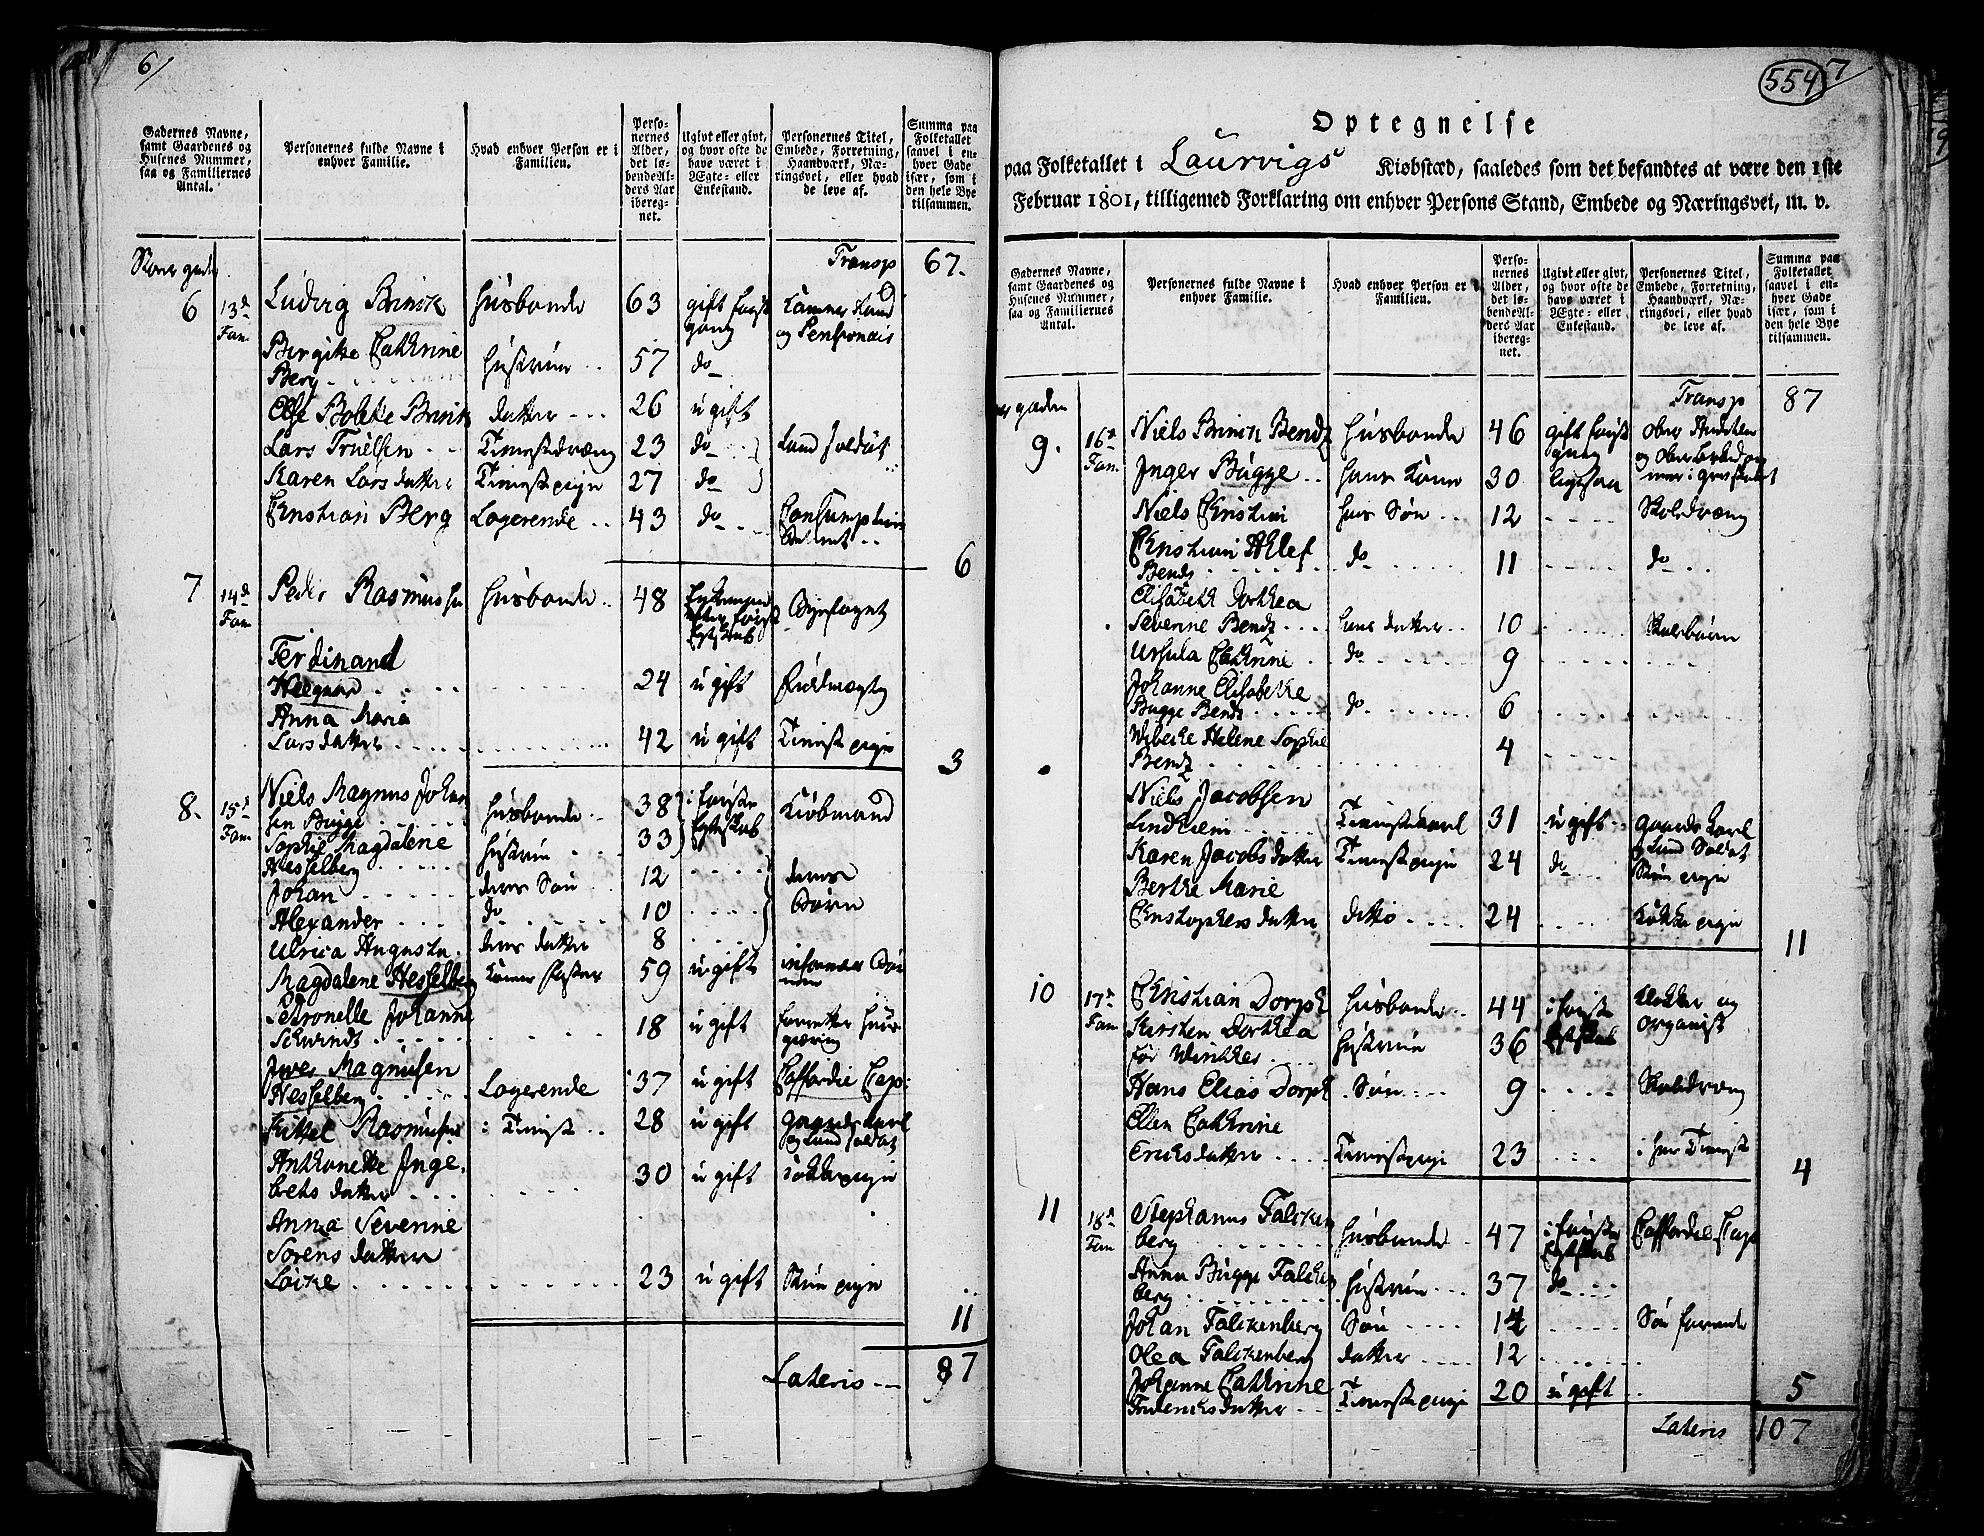 6/
Gadernes Navne, samt Gaardenes og Husenes Nummer, saa og Familiernes Antal.
Personernes fulde Navne i enhver Familie.
Hvad enhver Person er i Familien.
Personernes Alder, det løbende Alders Aar iberegnet.
Ugivt eller givt, og hvor ofte de have været i Ægte- eller Enkestand.
Personernes Titel, Embede, Forretning, Haandværk, Næringsvei, eller hvad de leve af.
Summa paa Folketallet saavel i enhver Gade især, som i den hele Bye tilsammen.
Transp 67.
6 13d Fam. Ludvig Brinck Husbonde 63 gift først gang
og Pensionais
Birgitte Cathrine
Berg Hustrue 57 do
Else Bolette Brinck datter 26 ugift
Lars Truelsen Tienistdræng 23 do Land Soldat
Karen Larsdatter Tienistepige 27 do
Christian Berg Logerende 43 do Consumptions
6
7 14d Fam Peder Rasmussen Husbonde 48 Byefoget
Ferdinand
24 ugift Fuldmægtig
Anna Maria
Larsdatter 42 ugift Tieniste pige
3
8. 15d Fam Niels Magnus Johan
sen Bugge Husbonde 38 i første Egteskab Kiøbmand
Sophie Magdalene
Hesselberg Hustrue 33
Johan deres Søn 12 deres
Alexander do 10 Børn
Ulrica Augusta deres datter 8
Magdalene Hesselberg 59 ugift
Petronelle Johanne
Schwindt 18 ugift
Iver Magnusen
Hesselberg Logerende 37 ugift Coffardie Cap:
Kittel Rasmusen i Tienist 28 ugift gaards karl
og Land Soldat
Anthonette Inge
brets datter 30 ugift kokkepige
Anna Severine
Sørens datter
Loike 23 ugift Stue pige
11
Lateris 87
554 7
Optegnelse
paa Folketallet i Laurvigs Kiøbstæd, saaledes som det befandtes at være den 1ste
Februar 1801, tilligemed Forklaring om enhver Persons Stand, Embede og Næringsvei, m. v.
Gadernes Navne, samt Gaardenes og Husenes Nummer, saa og Familiernes Antal.
Personernes fulde Navne i enhver Familie.
Hvad enhver Person er i Familien.
Personernes Alder, det løbende Alders Aar iberegnet.
Ugivt eller givt, og hvor ofte de have været i Ægte- eller Enkestand.
Personernes Titel, Embede, Forretning, Haandværk, Næringsvei, eller hvad de leve af.
Summa paa Folketallet saavel i enhver Gade især, som i den hele Bye tilsammen.
Transp 87
gaden
9. 16d Fam. Niels Brinck Bendz Husbonde 46 gift først gang
Inger Bugge hans Kone 30 ligesaa
Niels Christian hans Søn 12 Skoledræng
Christian Detlef
Bendz do 11 do
Elisabeth Dorthea
Severine Bendz hans datter 10 Skolebørn
Ursula Cathrine do 9
Johanne Elisabethe
Bugge Bendz do 6
Wibecke Helene Sophie
Bendz 4
Niels Jacobsen
Lindheim Tienistekarl 31 ugift gaards karl
og Land Soldat
Karen Jacobs datter Tienistepige 24 do Stue pige
Berthe Marie
Christophers datter ditto 24 Kokke pige
11
10 17d Fam Christian Dorph Husbonde 44 i første Klokker og
Organist
Kirsten Dorthea
før Winthes Hustrue 36 Egteskab
Hans Elias Dorph Søn 9 Skoledræng
Ellen Cathrine
Eriksdatter Tienistepige 23 i hus Tienist
4
11 18d Fam Stephanus Falcken
berg Husbonde 47 i første Egteskab Coffardie Cap
Anna Bugge Falcken
berg Hustrue 37 do
Johan Falckenberg Søn 14 Søe farende
Olea Falckenberg datter 12
Johanne Cathrine
Fredericksdatter Tienistepige 20 ugift
5
Lateris 107